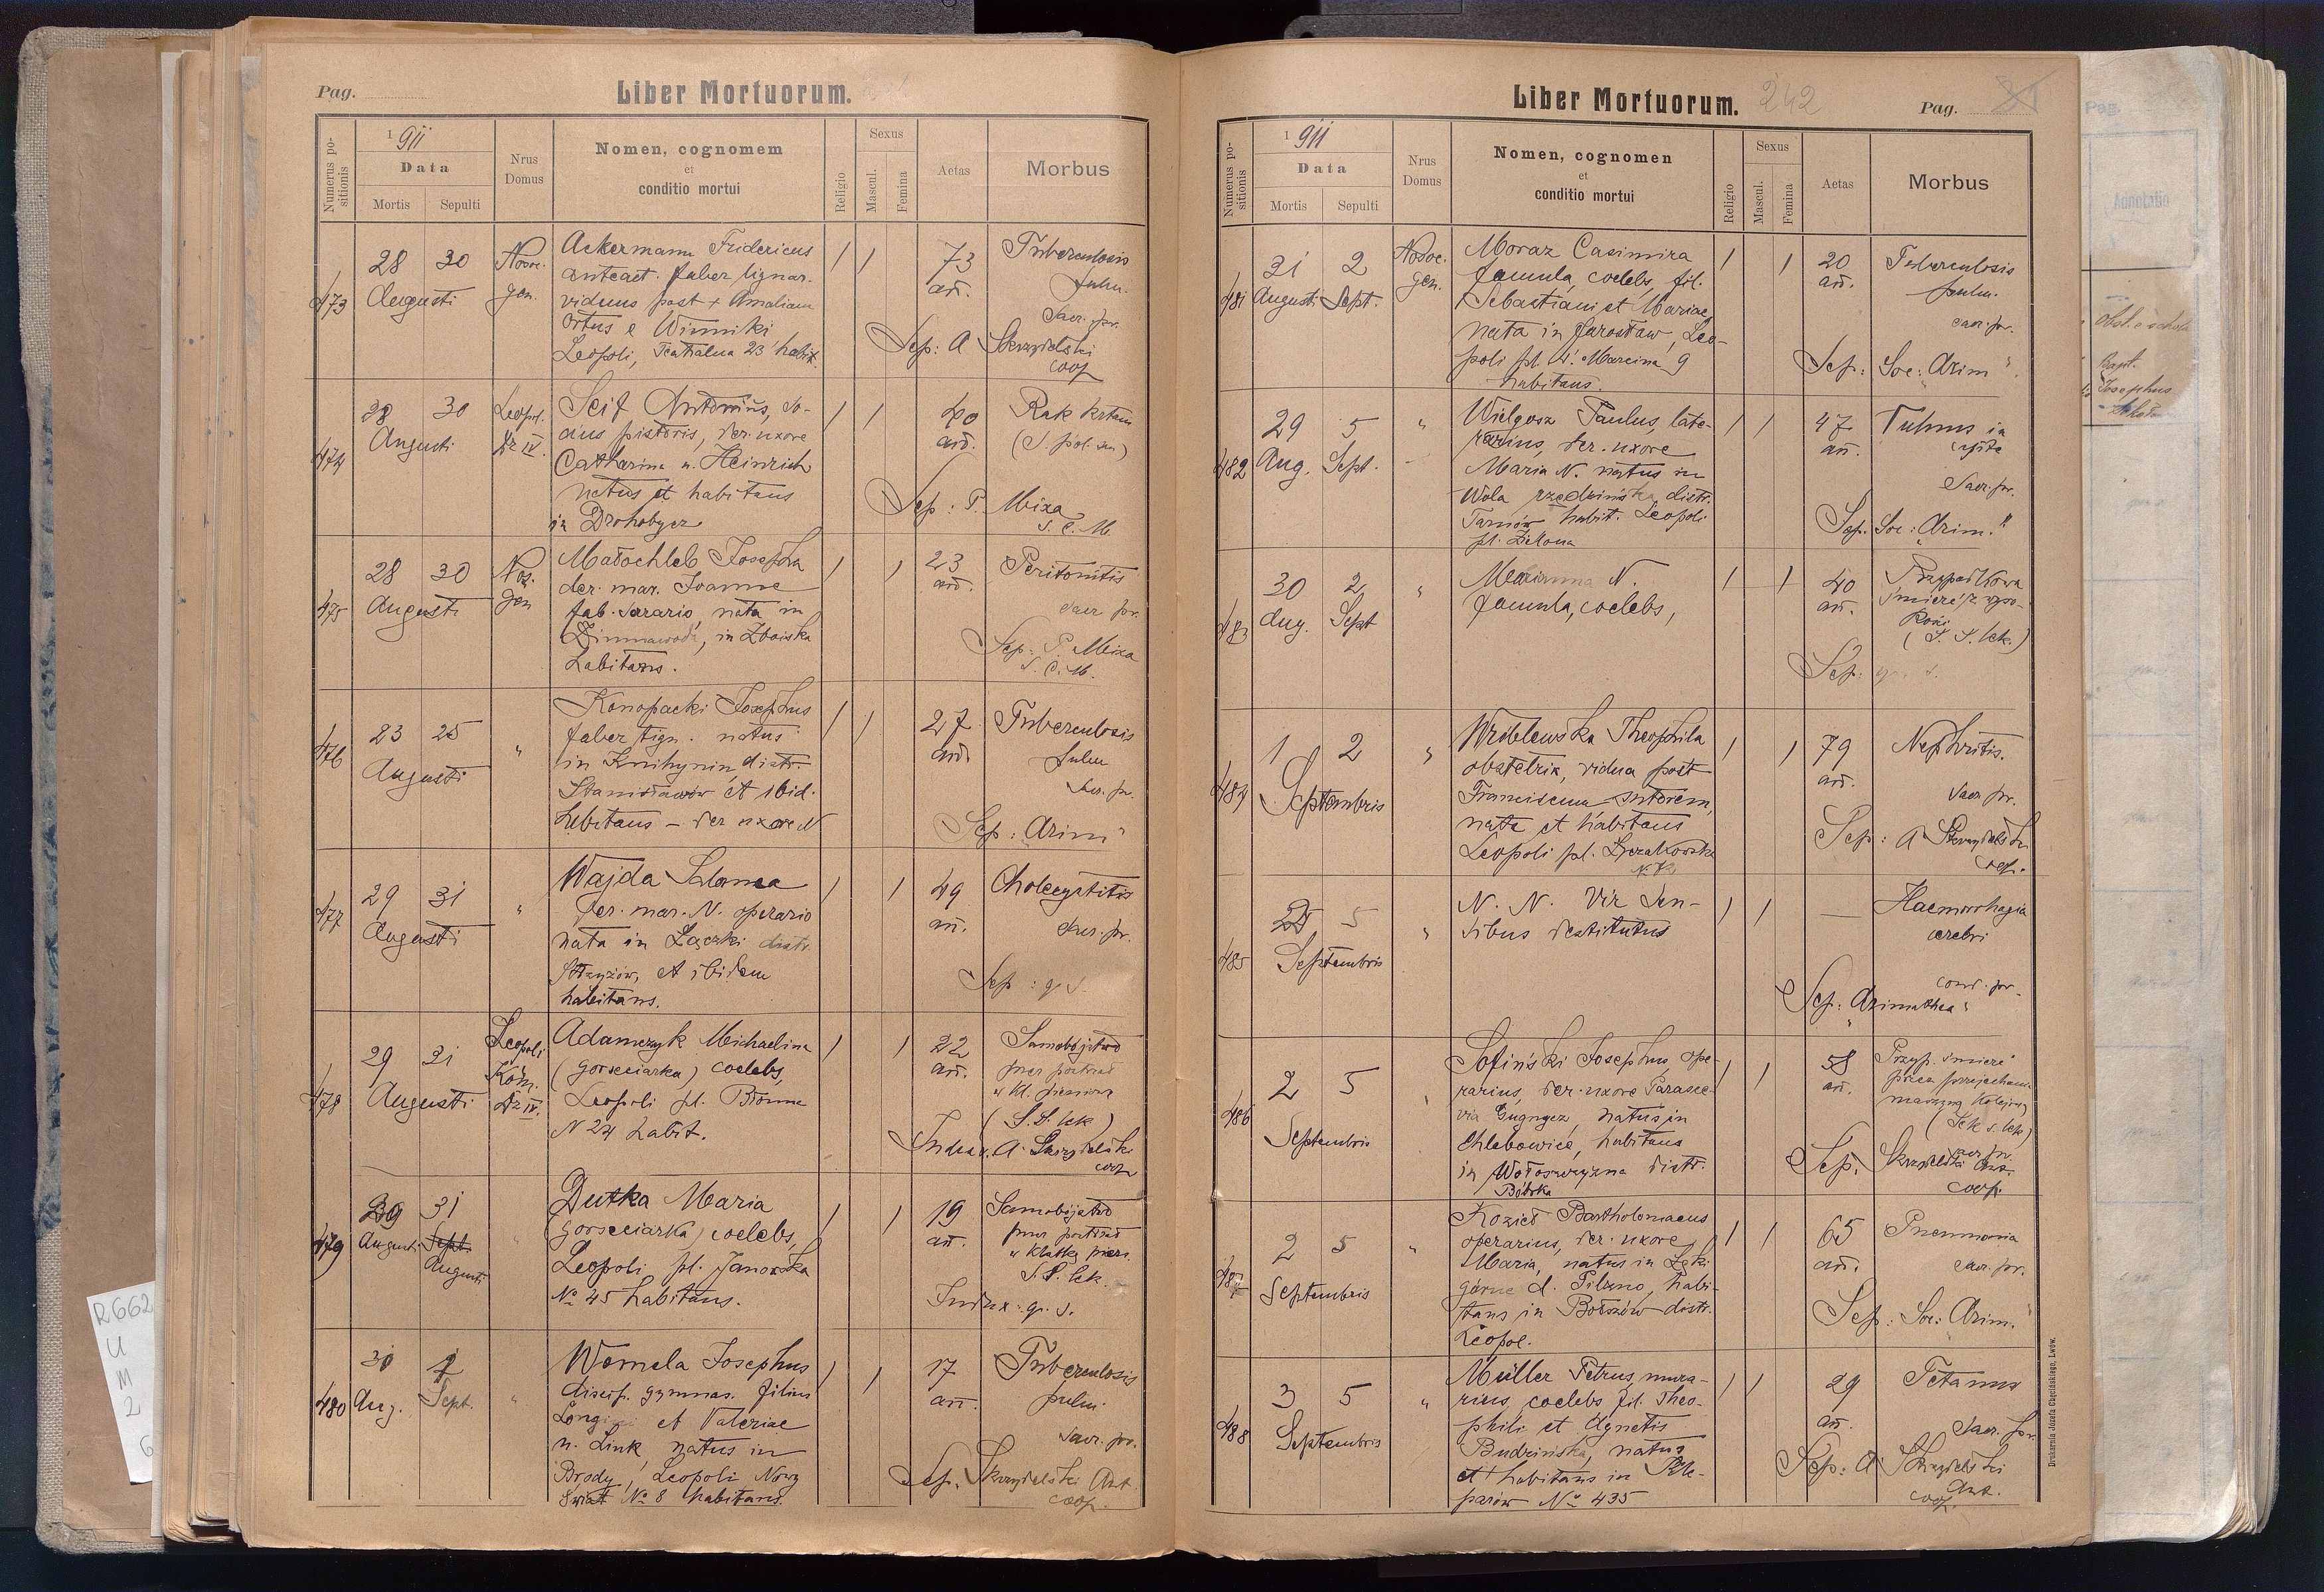 Pag.
Liber Mortuorum.
Numerus positionis
1911
Data
Mortis
Sepulti
Nrus Domus
Nomen, cognomem
et
conditio mortui
Religio
Sexus
Mascul.
Femina
Aetas
Morbus
473
28 30
Augusti
Nosoc.
gen.
Ackermann Fridericus
anteact. faber lignar.
viduus post + Amaliam
ortus e Winniki
Leopoli, Teatralna 23 habit.
73
an.
Tuberculosis
pulm.
Sacr. pr.
Sep: A Skrzydelski
coop
474
28 30
Augusti
Leopol.
Dz IV.
Seif Antonius, so-
cius pistoris, der. uxore
Catharina n. Heinrich
natus et habitans
in Drohobycz
40
an.
Rak krtani
Sep: P. Mixa
S. C. M.
475
28 30
Augusti
Nos.
gen
Madochleb Josepha
der. mar. Joanne
fab. serrario, nata in
Zimnawoda, in Zboiska
habitans.
23
an.
Peritonitis
sacr pr.
Sep: P. Mixa
S. C. M.
476
23 25
Augusti
"
Konopacki Josephus
faber lign. natus
in Knihynin, distr.
Stanisławów et ibid.
habitans – der uxore N
27
an.
Tuberculosis
pulm
sacr. pr.
Sep: Arim"
477
29 31
Augusti
"
Wajda Salomea
der. mar. N. operario
nata in Łączki distr.
Strzyżów, et ibidem
habitans.
49
an.
Cholecystitis
sacr. pr.
Sep: q. s.
478
29 31
Augusti
Leopoli
Kom.
Dz IV.
Adamczyk Michaelina
(gorseciarka) coelebs,
Leopoli pl. Bronna
N 24 habit.
22
an.
Samobójstwo
przez postrzał
w kl. piersiową
(S. S. lek)
Indux. A. Skrzydelski
coop
479
29 31
Augusti Sept.
Augusti
"
Dutka Maria
(gorseciarka) coelebs,
Leopoli pl. Janowska
No 45 habitans.
19
an.
Samobójstwo
przez postrzał
w klatkę piers.
S. S. lek.
Indux: q. s.
480
30 1
Aug. Sept.
"
Womela Josephus
discip. gymnas. filius
Longini et Valeriae
n. Link, natus in
Brody, Leopoli Nowy
Świat No 8 habitans.
17
an.
Tuberculosis
pulm.
sacr. pr.
Sep. Skrzydelski Ant.
coop.
Liber Mortuorum. 242
Pag.
Numerus positionis
1911
Data
Mortis
Sepulti
Nrus Domus
Nomen, cognomen
et
conditio mortui
Religio
Sexus
Mascul.
Femina
Aetas
Morbus
481
31 2
Augusti Sept.
Nosoc.
gen.
Moraz Casimira
famula, coelebs, fil.
Sebastiani et Mariae,
nata in Jarosław, Leo-
poli pl. Ś. Marcina 9
habitans.
20
an.
Tuberculosis
pulm.
sacr. pr.
Sep: Soc: Arim"
482
29 5
Aug. Sept.
"
Wielgosz Paulus, late-
rarius, der. uxore
Maria N. natus in
Wola rzędzińska, distr.
Tarnów habit. Leopoli
pl. Zielona
47
an.
Vulnus in
capite
Sacr. pr.
Sep. Soc: Arim."
483
30 2
Aug. Sept
"
Marianna N.
famula, coelebs,
40
an.
Przypadkowa
śmierć z wyso-
kości
(S. S. lek.)
Sep: q. s.
484
1 2
Septembris
"
Wróblewska Theophila
obstetrix, vidua post
Franciscum sutorem,
nata et habitans
Leopoli pl. Łyczakowska
79
an.
Nephritis.
sacr pr.
Sep: A Skrzydelski
coop.
485
5
Septembris
"
N. N. Vir sen-
sibus destitutus
—
Haemorrhagia
cerebri
cond. pr.
Sep: "Arimathea"
486
2 5
Septembris
"
Sofiński Josephus, ope-
rarius, der. uxore Parasce-
via natus in
Chlebowice, habitans
in Wołoszczyzna distr.
Bóbrka
58
an.
Przyp. śmierć
przez przejechanie
maszyną kolejową
sacr pr
Sep. Skrzydelski Ant.
coop.
487
2 5
Septembris
"
Kozieł Bartholomaeus
operarius, der. uxore
Maria, natus in Łęki
górne d. Pilzno, habi-
tans in Borszów distr.
Leopol.
65
an.
Pneumonia
sacr. pr.
Sep: Soc: Arim."
488
3 5
Septembris
"
Müller Petrus, mura-
rius, coelebs fil. Theo-
phili et Agnetis
Budzińska, natus
et habitans in Kle-
parów No 435
29
an.
Tetanus
Sacr. pr.
Sep: A. Skrzydelski
Ant.
coop.
Drukarnia Józefa Chęcińskiego, Lwów.
Pag.
Adnotatio
Bapt.
Josephus
R662
U
M
2
6